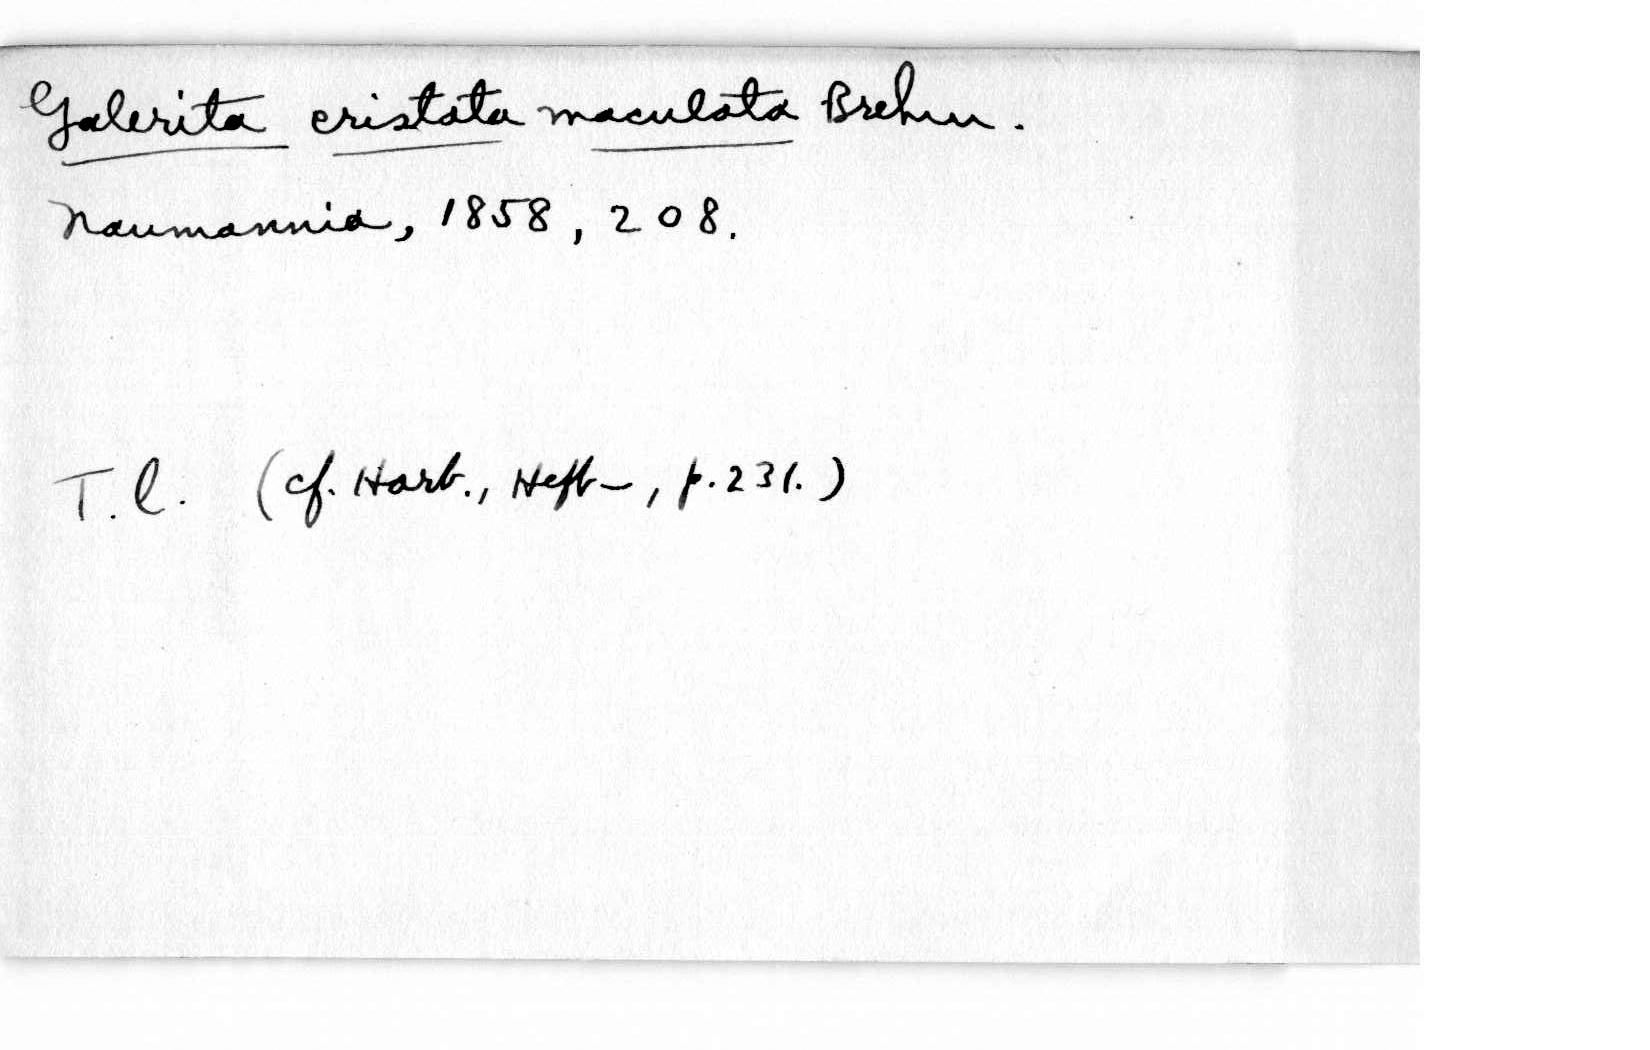 Galerita cristata maculata Brehm.
Naumannia, 1858, 208.
T.l. (cf. Hart., Heft—, p. 231.)